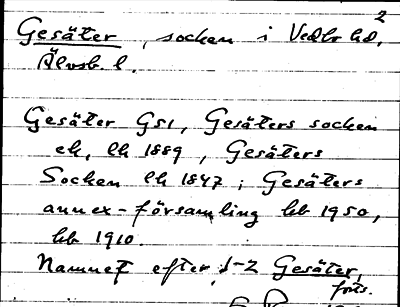 2
Gesäter, socken i Vedbo hd,
Älvsb. l.
Gesäter GS1, Gesäters socken
ek, lh 1889, Gesäters
Socken lh 1847; Gesäters
annex-församling hb 1950,
hb 1910.
Namnet efter 1-2 Gesäter,
forts.